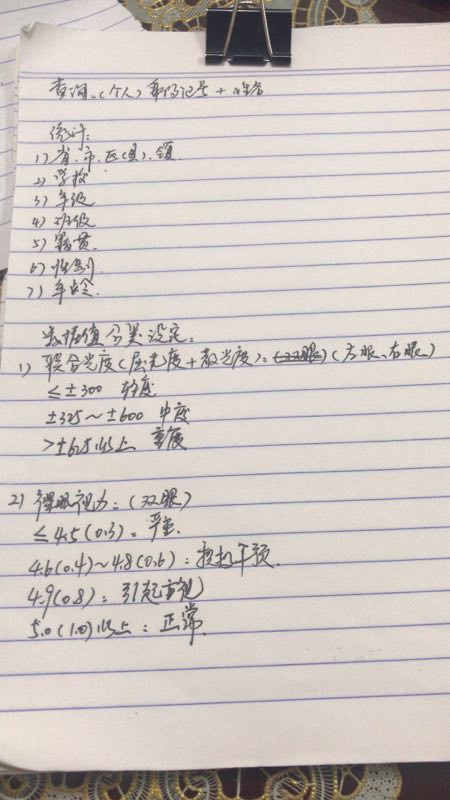 查询:(个人)身份证号+姓名
统计:
1)省、市、区(县)、镇
2)学校
3)年级
4)班级
5)籍贯
6)性别
7)年龄
数据值分类设定:
1)联合光度(屈光度+散光度):(双眼)(左眼、右眼)
≤±300 轻度
±325~±600 中度
>±625以上 重度
2)裸眼视力:(双眼)
≤4.5(0.3):严重
4.6(0.4)~4.8(0.6):干预
4.9(0.8):引起重视
5.0(1.0)以上:正常